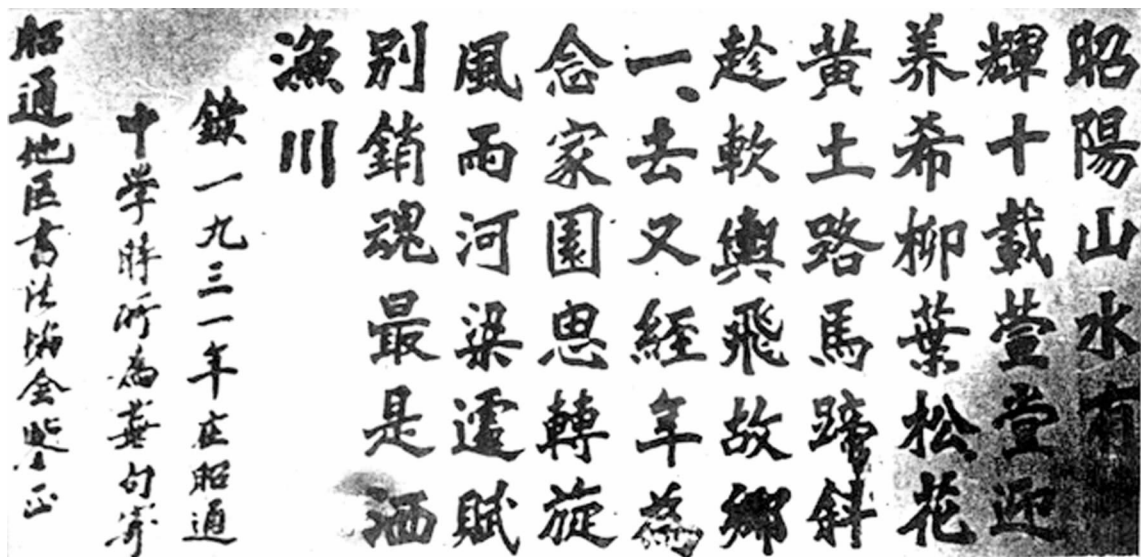 昭陽山水有
輝十載萱堂迎
養希柳葉松花
黃土路馬蹄斜
趁軟輿飛故鄉
一去又經年為
念家園思轉旋
風雨河梁遽賦
別銷魂最是洒
漁川
錄一九三一年在昭通
中学時所為蕪句寄
昭通地区書法協会鑒正